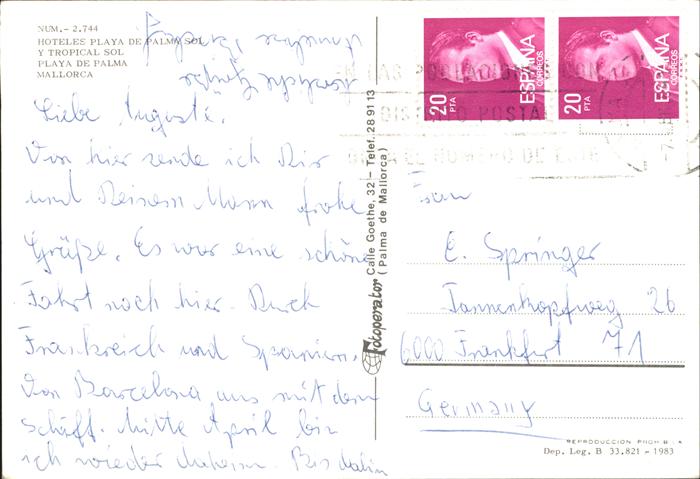 NUM.- 2.744
HOTELES PLAYA DE PALMA SOL
Y TROPICAL SOL
PLAYA DE PALMA
MALLORCA
Liebe Auguste.
Von hier sende ich Dir
und Deinem Mann frohe
Grüße. Es war eine schöne
Fahrt nach hier. Durch
Frankreich und Spanien.
Von Barcelona aus mit dem
Schiff. Mitte April bin
ich wieder daheim. Bis dahin
herzlichste Grüße
Fotoperator Calle Goethe, 32 - Telef. 28 91 13
(Palma de Mallorca)
20 PTA
ESPAÑA
CORREOS
20 PTA
ESPAÑA
CORREOS
EL NUMERO DE
Frau
E. Springer
Tannenkopfweg 26
6000 Frankfurt 71
Germany
REPRODUCCION PROHIBIDA
Dep. Leg. B 33.821 - 1983